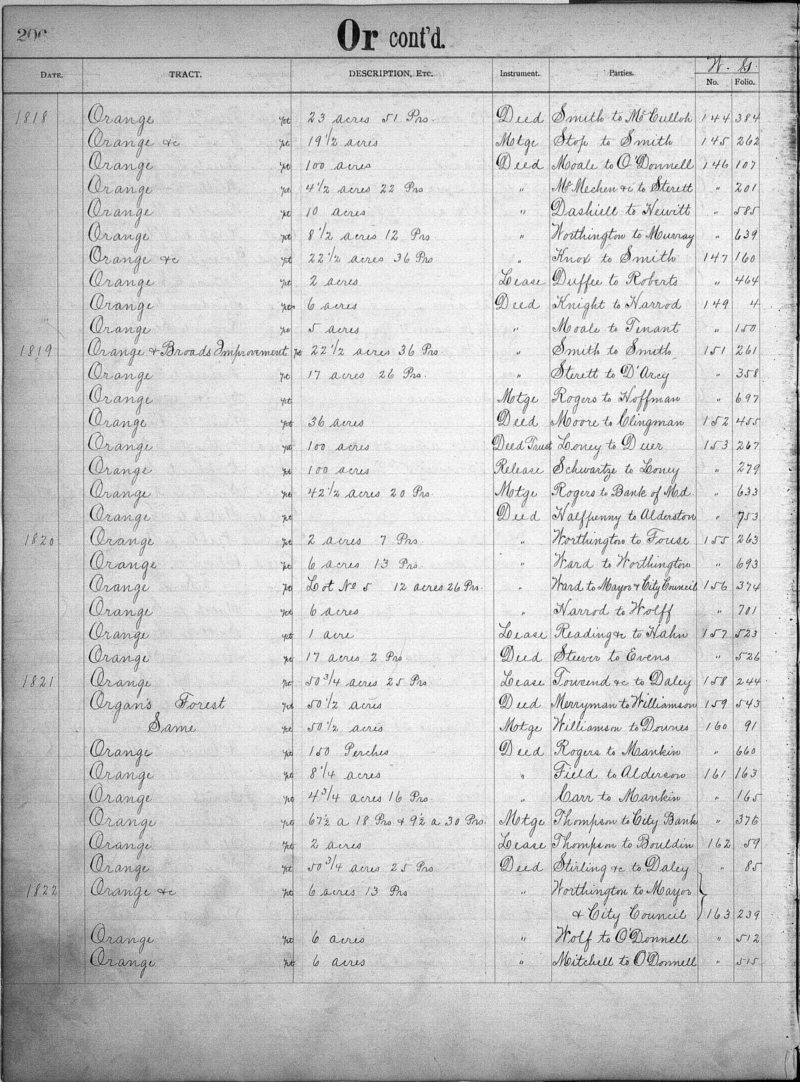 206
Or cont'd.
W. G.
DATE. TRACT. DESCRIPTION, ETC. Instrument. Parties. No. Folio.
1818 Orange pt 23 acres 51 Prs. Deed Smith to McCulloh 144 384
Orange &c pt 19 1/2 acres Motge Stop to Smith 145 262
Orange pt 100 acres Deed Moale to O'Donnell 146 107
Orange pt 4 1/2 acres 22 Prs " McMechen &c to Sterett " 201
Orange pt 10 acres " Dashiell to Hewitt " 585
Orange pt 8 1/2 acres 12 Prs " Worthington to Murray " 639
Orange &c pt 22 1/2 acres 36 Prs " Knox to Smith 147 160
Orange pt 2 acres Lease Duffee to Roberts " 464
Orange pt 6 acres Deed Knight to Harrod 149 4
Orange pt 5 acres " Moale to Tenant " 150
1819 Orange & Broads Improvement pt 22 1/2 acres 36 Prs " Smith to Smith 151 261
Orange pt 17 acres 26 Prs. " Sterett to D'Arcy " 358
Orange pt Motge Rogers to Hoffman " 697
Orange pt 36 acres Deed Moore to Clingman 152 455
Orange pt 100 acres Deed Trust Loney to Duer 153 267
Orange pt 100 acres Release Schwartze to Loney " 279
Orange pt 42 1/2 acres 20 Prs Motge Rogers to Bank of Md " 633
Orange pt Deed Halfpenny to Alderston " 753
1820 Orange pt 2 acres 7 Prs. " Worthington to Fouse 155 263
Orange pt 6 acres 13 Prs. " Ward to Worthington " 693
Orange pt Lot No 5 12 acres 26 Prs. " Ward to Mayor & City Council 156 374
Orange pt 6 acres " Harrod to Wolff " 701
Orange pt 1 acre Lease Reading &c to Hahn 157 523
Orange pt 17 acres 2 Prs Deed Stewer to Evens " 526
1821 Orange pt 50 3/4 acres 25 Prs. Lease Towsend &c to Daley 158 244
Organs Forest pt 50 1/2 acres Deed Merryman to Williamson 159 543
Same pt 50 1/2 acres Motge Williamson to Downes 160 91
Orange pt 150 Perches Deed Rogers to Mankin " 660
Orange pt 8 1/4 acres " Field to Alderson 161 163
Orange pt 4 3/4 acres 16 Prs. " Carr to Mankin " 165
Orange pt 67 1/2 a 18 Prs & 9 1/2 a 30 Prs. Motge Thompson to City Bank " 376
Orange pt 2 acres Lease Thompson to Bouldin 162 59
Orange pt 50 3/4 acres 25 Prs. Deed Stirling &c to Daley " 85
1822 Orange &c pt 6 acres 13 Prs " Worthington to Mayor
& City Council 163 239
Orange pt 6 acres " Wolf to O'Donnell " 512
Orange pt 6 acres " Mitchell to O'Donnell " 515